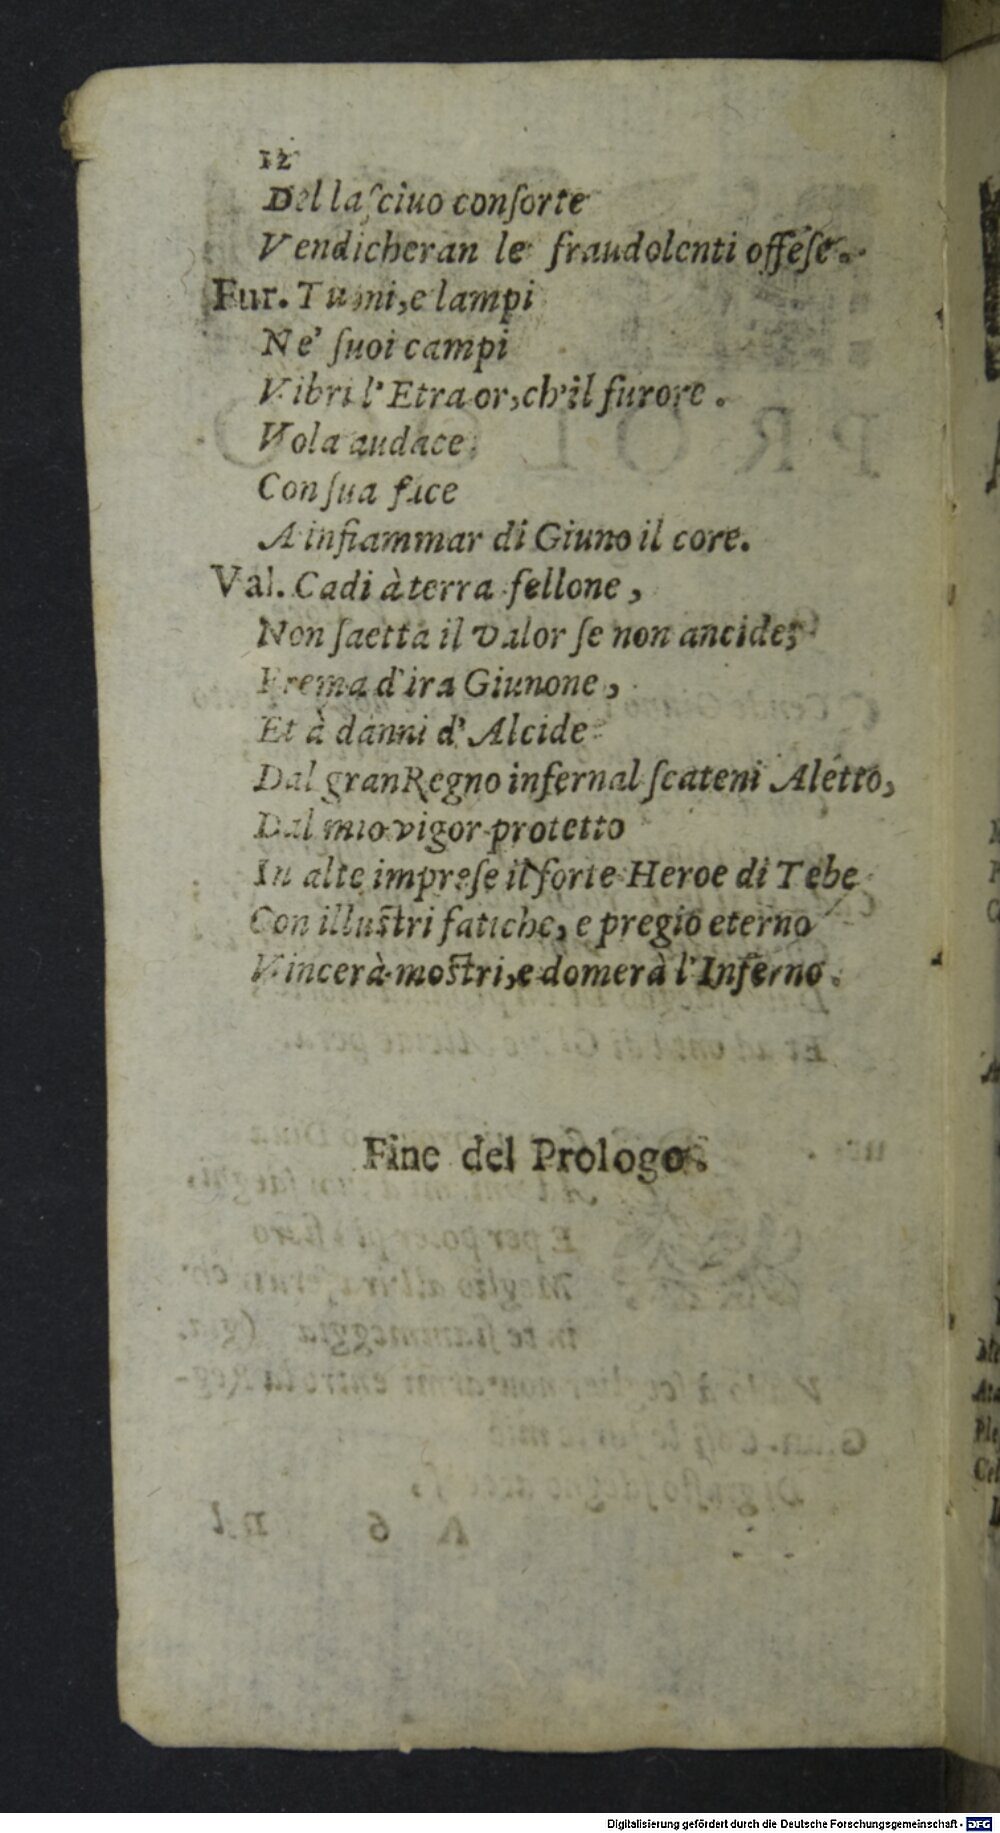 12
Del laſciuo conſorte
Vendicheran le fraudolenti offeſe.
Fur. Tumi, e lampi
Ne' ſuoi campi
Vibri l'Etra or, ch'il furore.
Vola audace
Con ſua face
A infiammar di Giuno il core.
Val. Cadi à terra fellone,
Non ſaetta il valor ſe non ancide;
Frema d'ira Giunone,
Et à danni d'Alcide
Dal gran Regno infernal ſcateni Aletto,
Dal mio vigor protetto
In alte impreſe il forte Heroe di Tebe
Con illuſtri fatiche, e pregio eterno
Vincerà moſtri, e domerà l'Inferno.
Fine del Prologo.
Digitalisierung gefördert durch die Deutsche Forschungsgemeinschaft - DFG